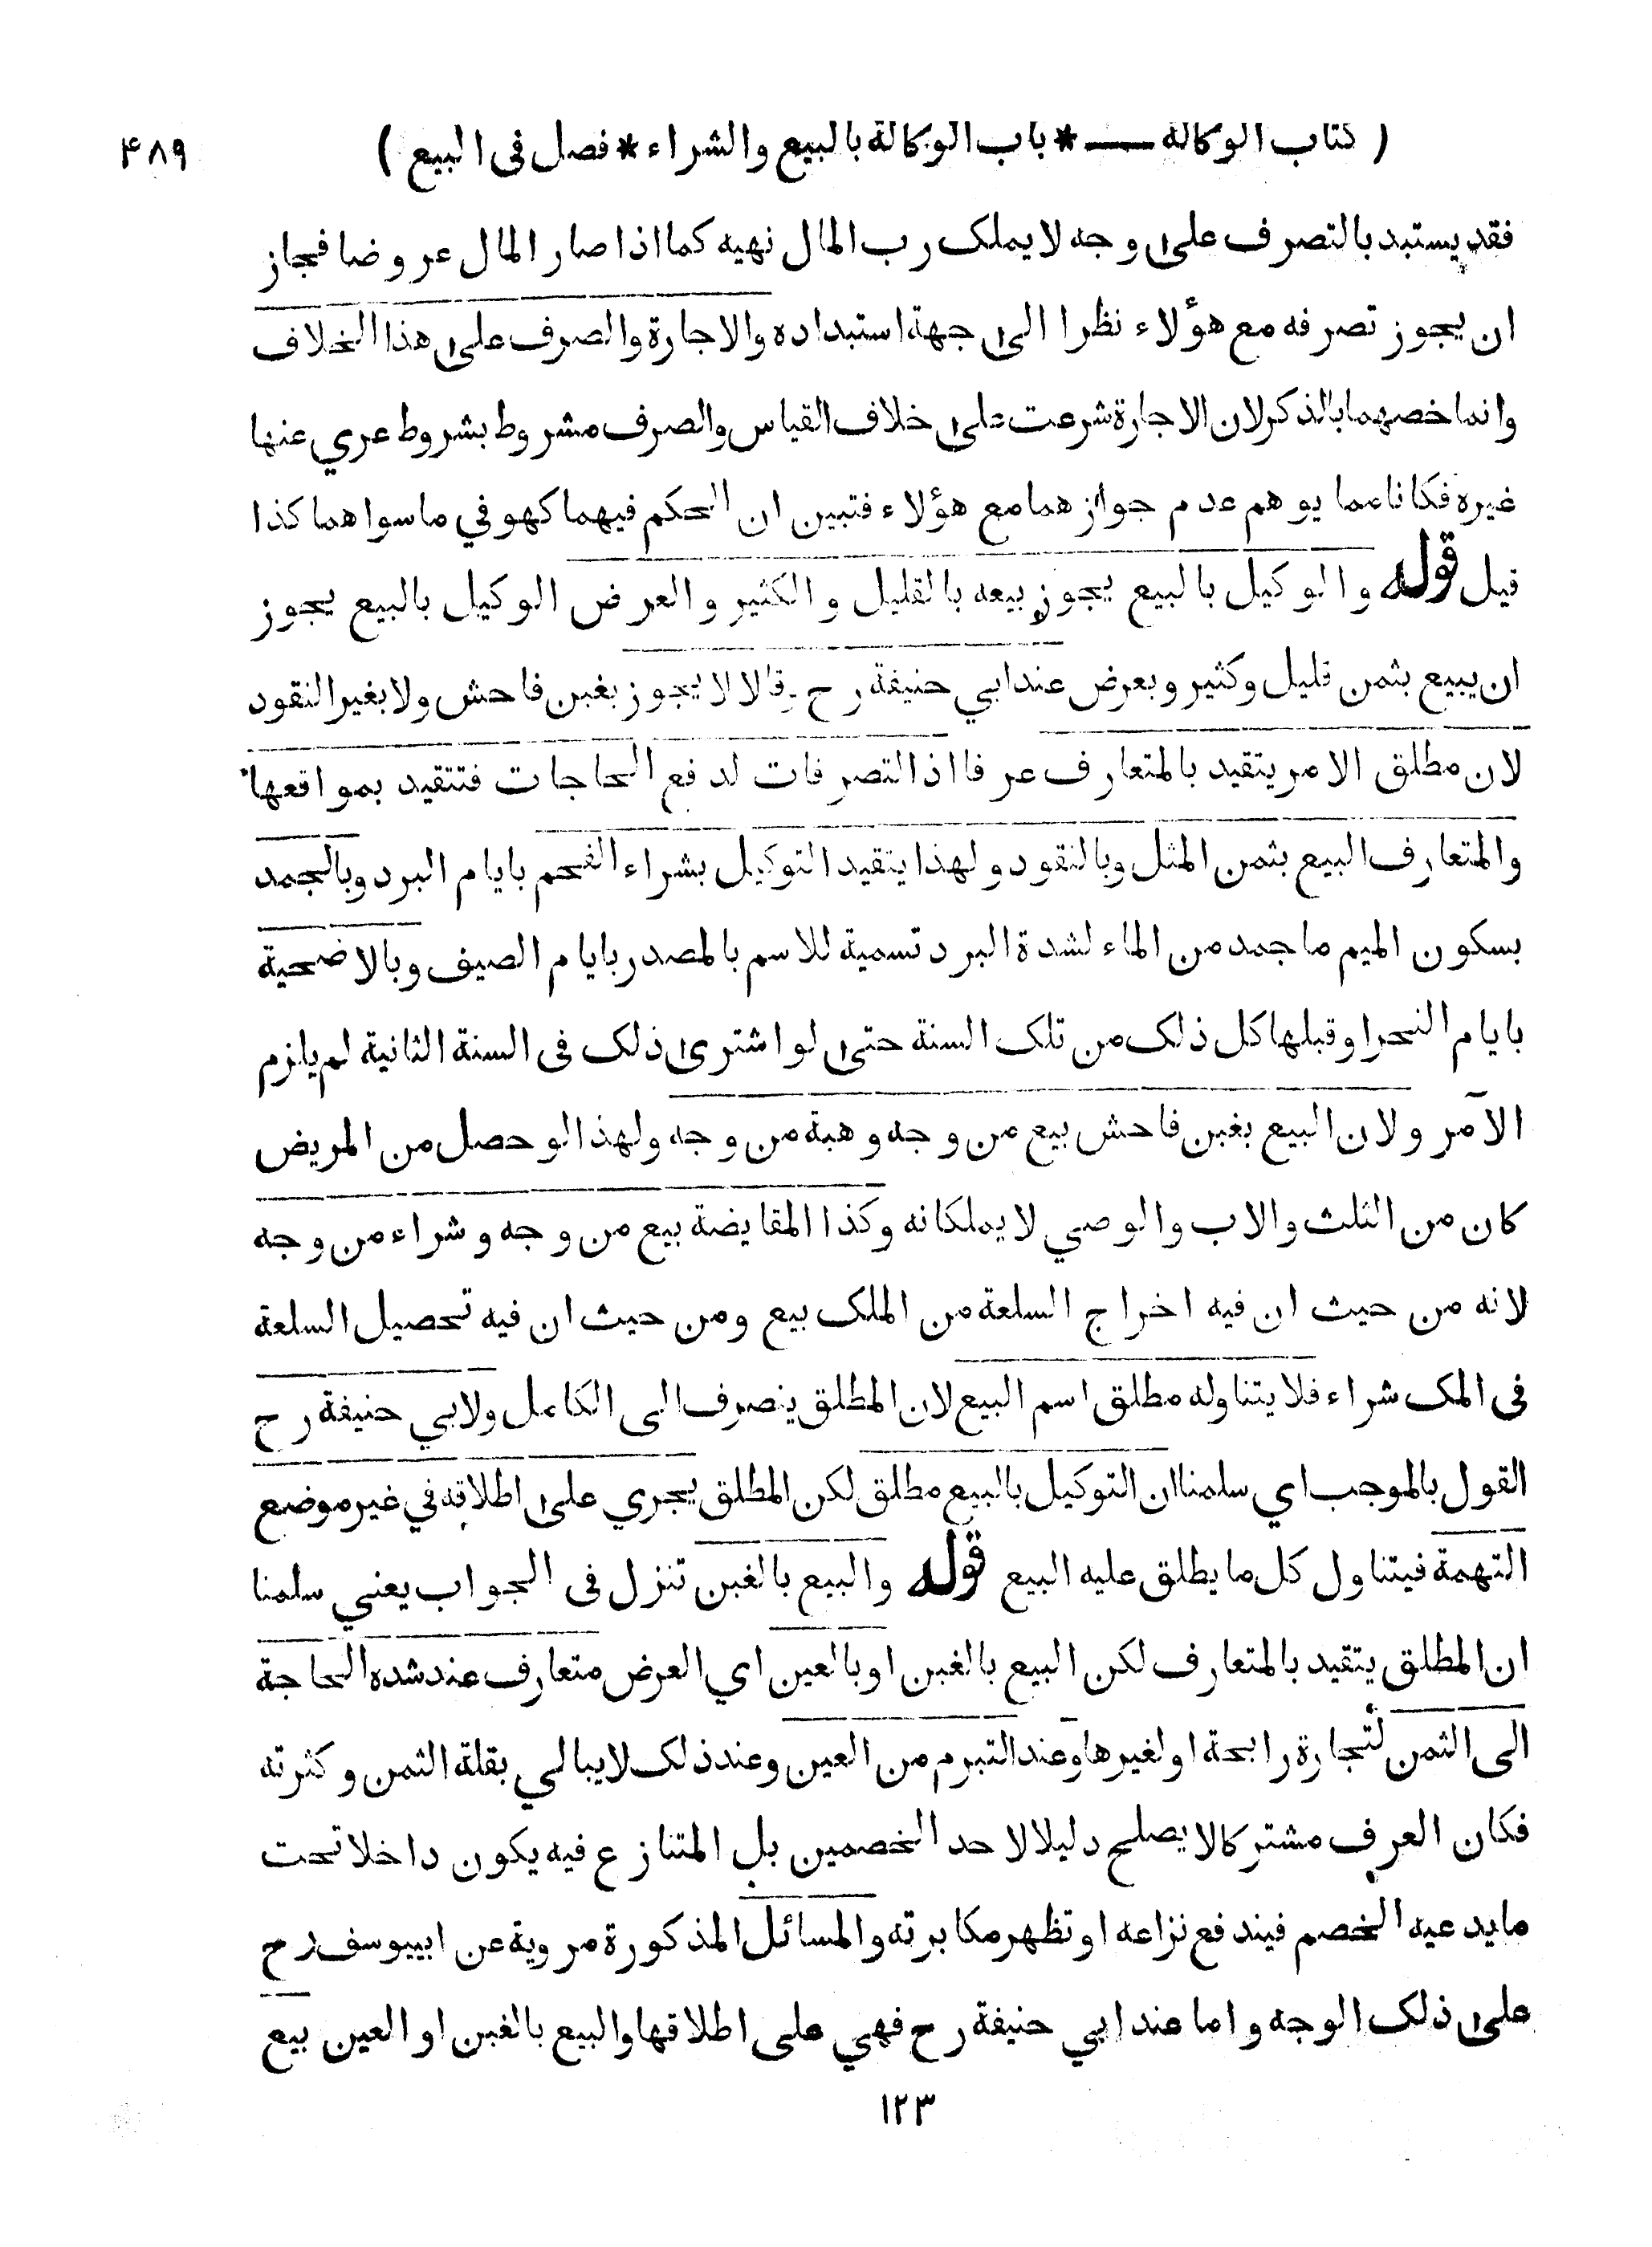 ( كتاب الوكالة — * باب الوكالة بالبيع والشراء * فصل فى البيع ) ۴۸۹
فقد يستبد بالتصرف على وجه لا يملك رب المال نهيه كما اذا صار المال عروضا فجاز
ان يجوز تصرفه مع هؤلاء نظرا الى جهة استبداده والاجارة والصرف على هذا الخلاف
وانما خصهما بالذكر لان الاجارة شرعت على خلاف القياس والصرف مشروط بشروط عري عنها
غيره فكانا مما يوهم عدم جوازهما مع هؤلاء فتبين ان الحكم فيهما كهو في ما سواهما كذا
قيل قوله والوكيل بالبيع يجوز بيعه بالقليل والكثير والعرض الوكيل بالبيع يجوز
ان يبيع بثمن قليل وكثير وبعرض عند ابي حنيفة رح وقالا لا يجوز بغبن فاحش ولا بغير النقود
لان مطلق الامر يتقيد بالمتعارف عرفا اذ التصرفات لدفع الحاجات فتتقيد بمواقعها
والمتعارف البيع بثمن المثل وبالنقود ولهذا يتقيد التوكيل بشراء الفحم بايام البرد وبالجمد
بسكون الميم ما جمد من الماء لشدة البرد تسمية للاسم بالمصدر بايام الصيف وبالاضحية
بايام النحر او قبلها كل ذلك من تلك السنة حتى لو اشترى ذلك فى السنة الثانية لم يلزم
الآمر ولان البيع بغبن فاحش بيع من وجه وهبة من وجه ولهذا لو حصل من المريض
كان من الثلث والاب والوصي لا يملكانه وكذا المقايضة بيع من وجه وشراء من وجه
لانه من حيث ان فيه اخراج السلعة من الملك بيع ومن حيث ان فيه تحصيل السلعة
فى المك شراء فلا يتناوله مطلق اسم البيع لان المطلق ينصرف الى الكامل ولابي حنيفة رح
القول بالموجب اي سلمنا ان التوكيل بالبيع مطلق لكن المطلق يجري على اطلاقه في غير موضع
التهمة فيتناول كل ما يطلق عليه البيع قوله والبيع بالغبن تنزل فى الجواب يعني سلمنا
ان المطلق يتقيد بالمتعارف لكن البيع بالغبن او بالعين اي العرض متعارف عند شده الحاجة
الى الثمن لتجارة رابحة او لغيرها وعند التبرم من العين وعند ذلك لا يبالي بقلة الثمن وكثرته
فكان العرف مشتركا لا يصلح دليلا لاحد الخصمين بل المتنازع فيه يكون داخلا تحت
ما يدعيه الخصم فيندفع نزاعه او تظهر مكابرته والمسائل المذكورة مروية عن ابييوسف رح
على ذلك الوجه واما عند ابي حنيفة رح فهي على اطلاقها والبيع بالغبن او العين بيع
۱۲۳